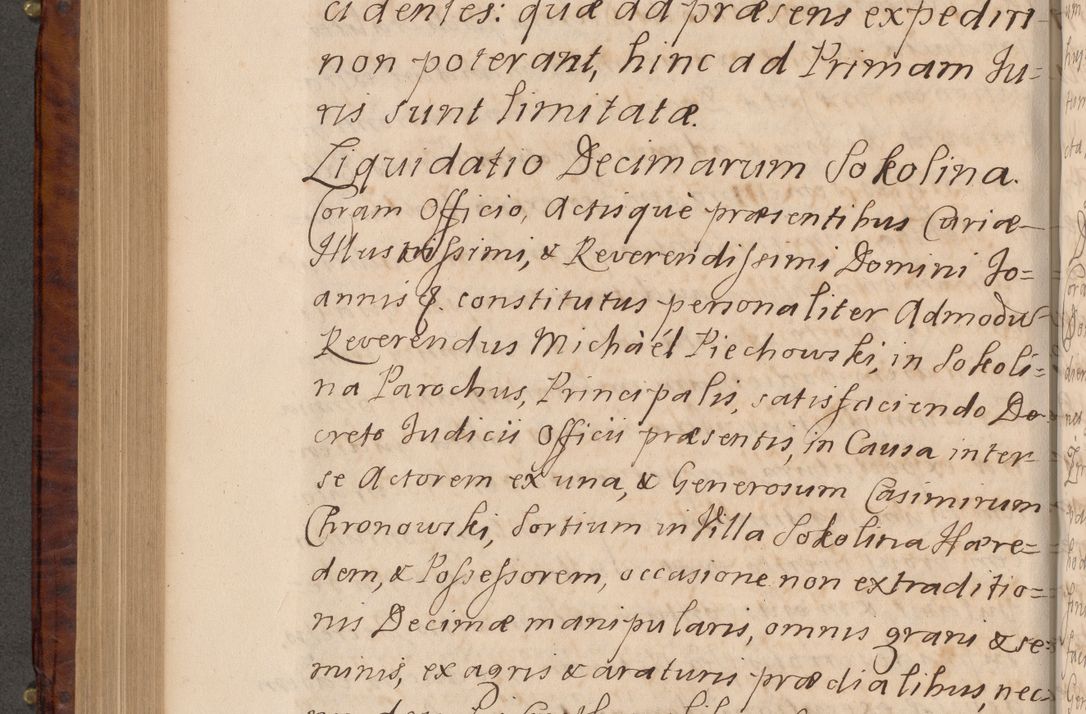 cidentes: quæ ad præsens expediri
non poterant, hinc ad Primam Iu=
ris sunt limitatæ.
Liquidatio Decimarum Sokolina.
Coram Officio, Actisquè præsentibus Curiæ
Illustrissimi, & Reverendissimi Domini Io=
annis &. constitutus personaliter Admodū
Reverendus Michàél Piechowski, in Sokoli=
na Parochus, Principalis, satisfaciendo De=
creto Iudicii Officii præsentis, in Causa inter
se Actorem ex una, & Generosum Casimirum
Chronowski, Sortium in Villa Sokolina Hære=
dem, & Possessorem, occasione non extraditio=
nis Decimæ manipularis, omnis grani & se=
minis, ex agris & araturis prædialibus, nec